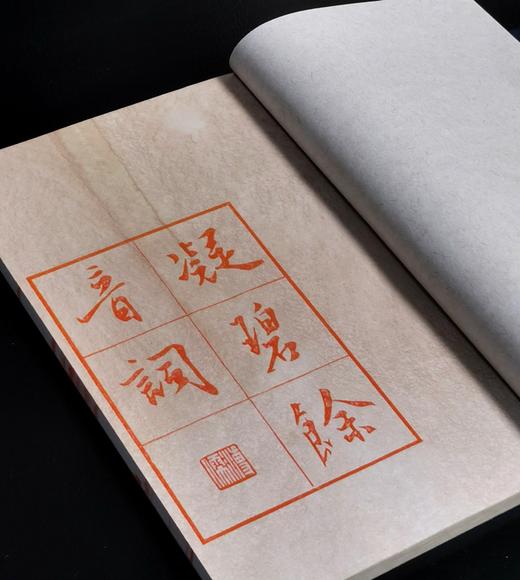 凝碧餘
音詞